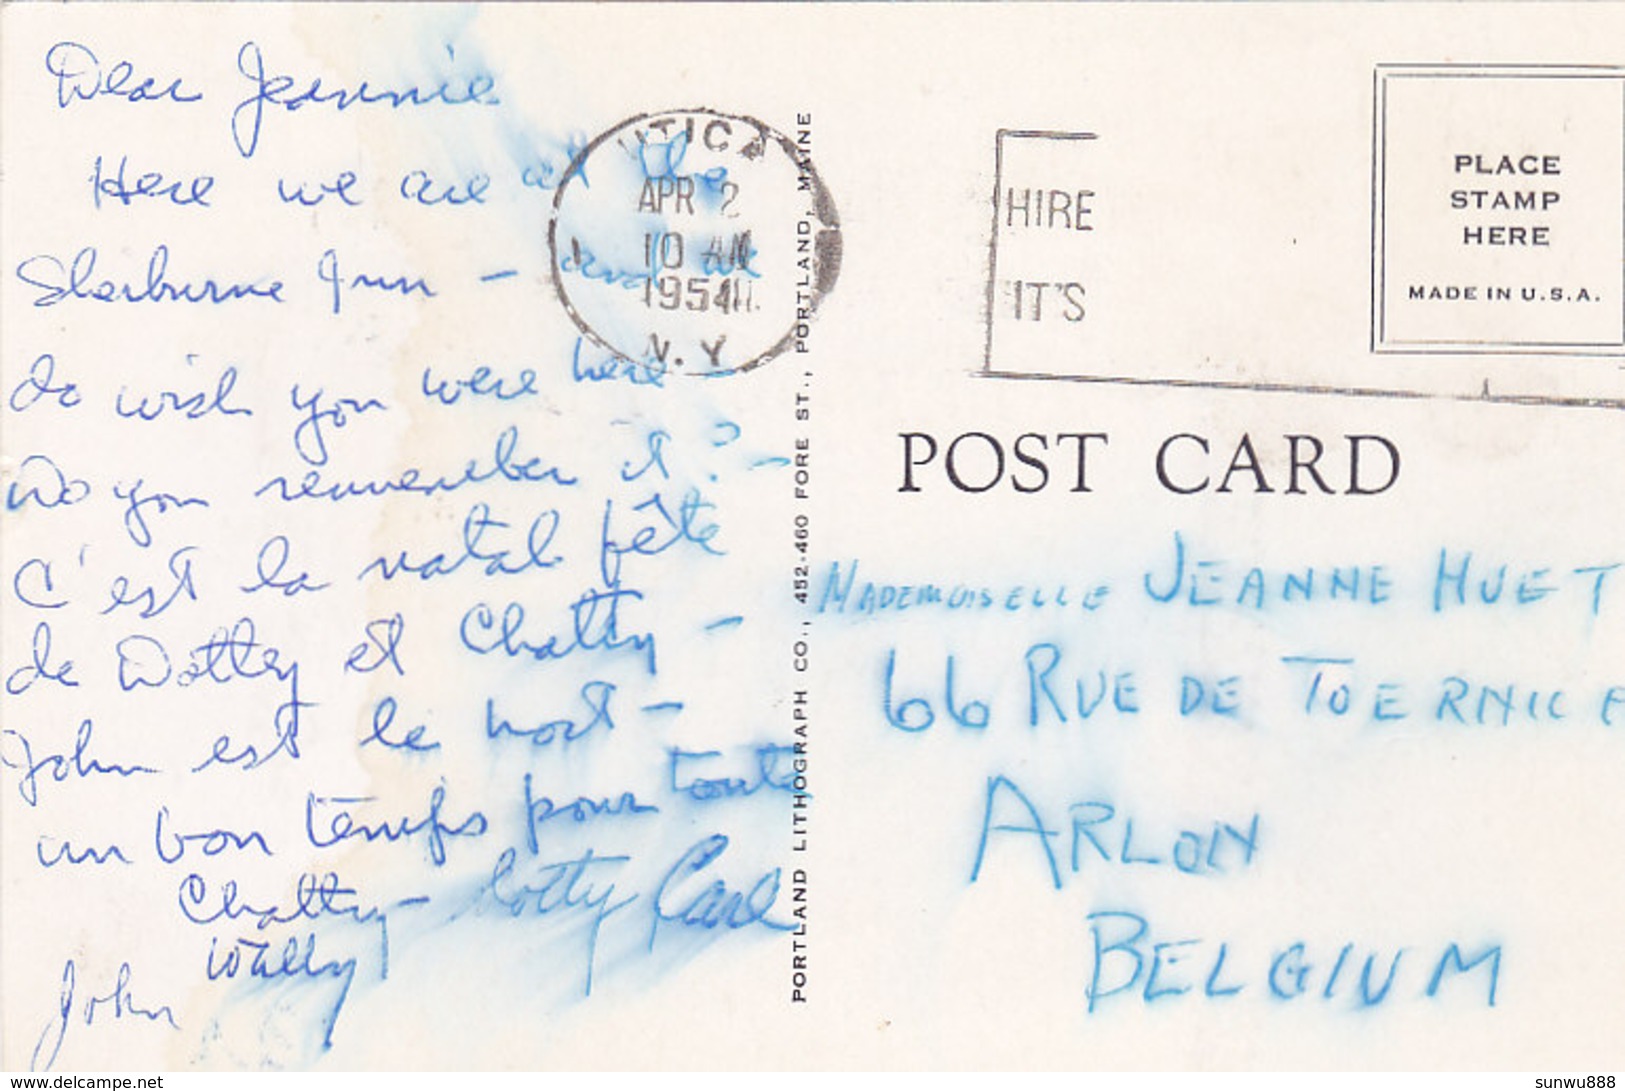 Dear Jeannie
Here we are at the
Sherburne Inn – and we
do wish you were here –
Do you remember it? –
C'est la natal fête
de Dottey et Chatty –
John est le host –
un bon temps pour toute
Chatty – Dotty Carl
Wally
John
UTICA
APR 2
10 AM
1954
N.Y.
HIRE
IT'S
PORTLAND LITHOGRAPH CO., 452-460 FORE ST., PORTLAND, MAINE
PLACE
STAMP
HERE
MADE IN U.S.A.
POST CARD
MADEMOISELLE JEANNE HUET
66 RUE DE TOERNICE
ARLON
BELGIUM
www.delcampe.net
sunwu888